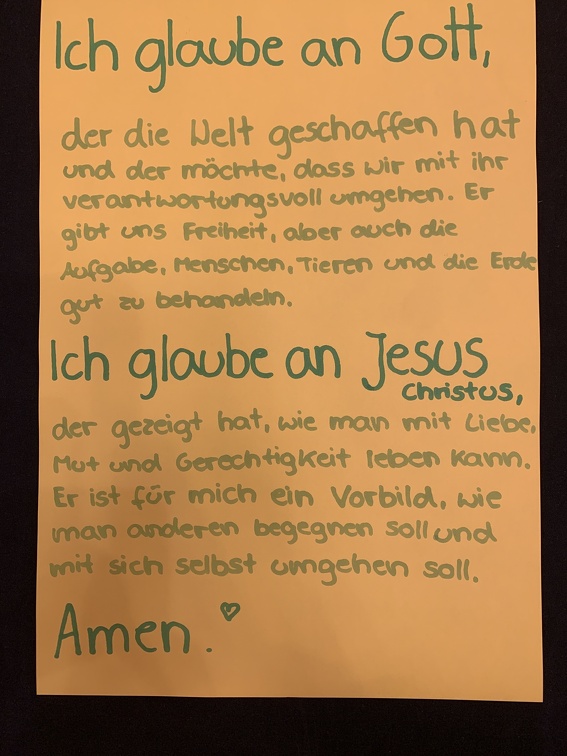 Ich glaube an Gott,
der die Welt geschaffen hat
und der möchte, dass wir mit ihr
verantwortungsvoll umgehen. Er
gibt uns Freiheit, aber auch die
Aufgabe, Menschen, Tieren und die Erde
gut zu behandeln.
Ich glaube an Jesus
Christus,
der gezeigt hat, wie man mit Liebe,
Mut und Gerechtigkeit leben kann.
Er ist für mich ein Vorbild, wie
man anderen begegnen soll und
mit sich selbst umgehen soll.
Amen.